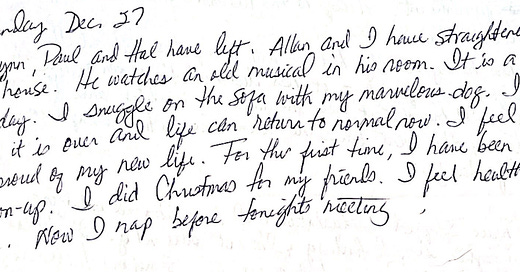 nday Dec. 27
ynn, Paul and Hal have left. Allan and I have straightene
house. He watches an old musical in his room. It is a
day. I snuggle on the sofa with my marvelous dog. I
it is over and life can return to normal now. I feel
proud of my new life. For the first time, I have been
on-up. I did Christmas for my friends. I feel health
. Now I nap before tonights meeting.